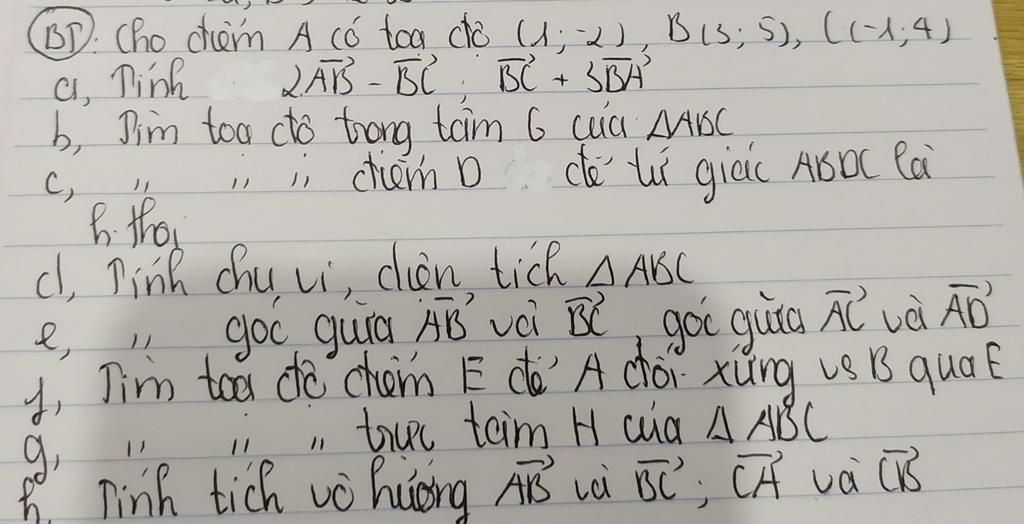 BT: Cho điểm A có toạ độ (1; -2), B(3; 5), C(-1; 4)
a, Tính 2AB→ - BC→; BC→ + 3BA→
b, Tìm toạ độ trọng tâm G của ΔABC
c, " " " điểm D để tứ giác ABDC là
h. thoi
d, Tính chu vi, diện tích ΔABC
e, " góc giữa AB→ và BC→, góc giữa AC→ và AD→
f, Tìm toạ độ điểm E để A đối xứng vs B qua E
g, " " " trực tâm H của ΔABC
h, Tính tích vô hướng AB→ và BC→; CA→ và CB→